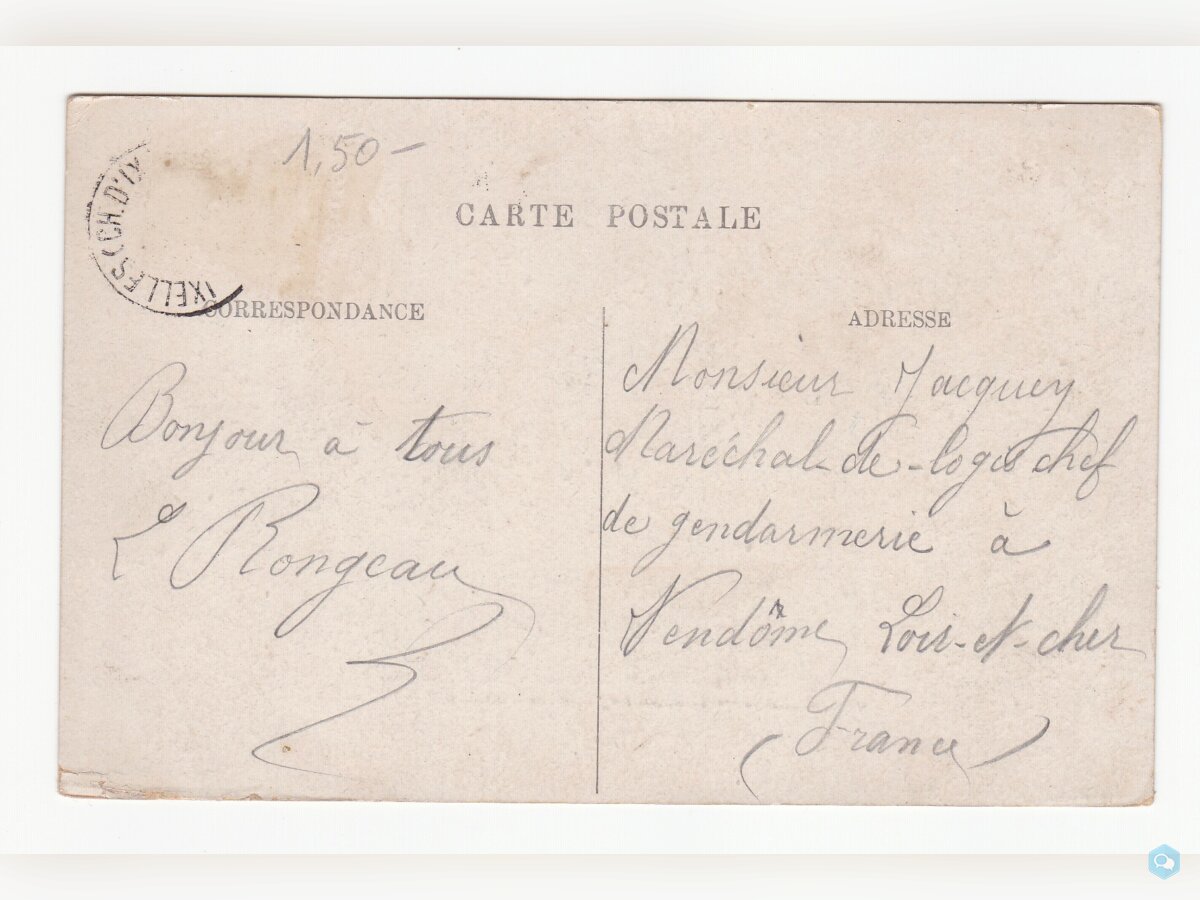 1,50-
CARTE POSTALE
IXELLES (CH. D'IX
CORRESPONDANCE
Bonjour à tous
L Rongeau
ADRESSE
Monsieur Jacquey
Maréchal-de-logis chef
de gendarmerie à
Vendôme Loir-et-cher
(France)